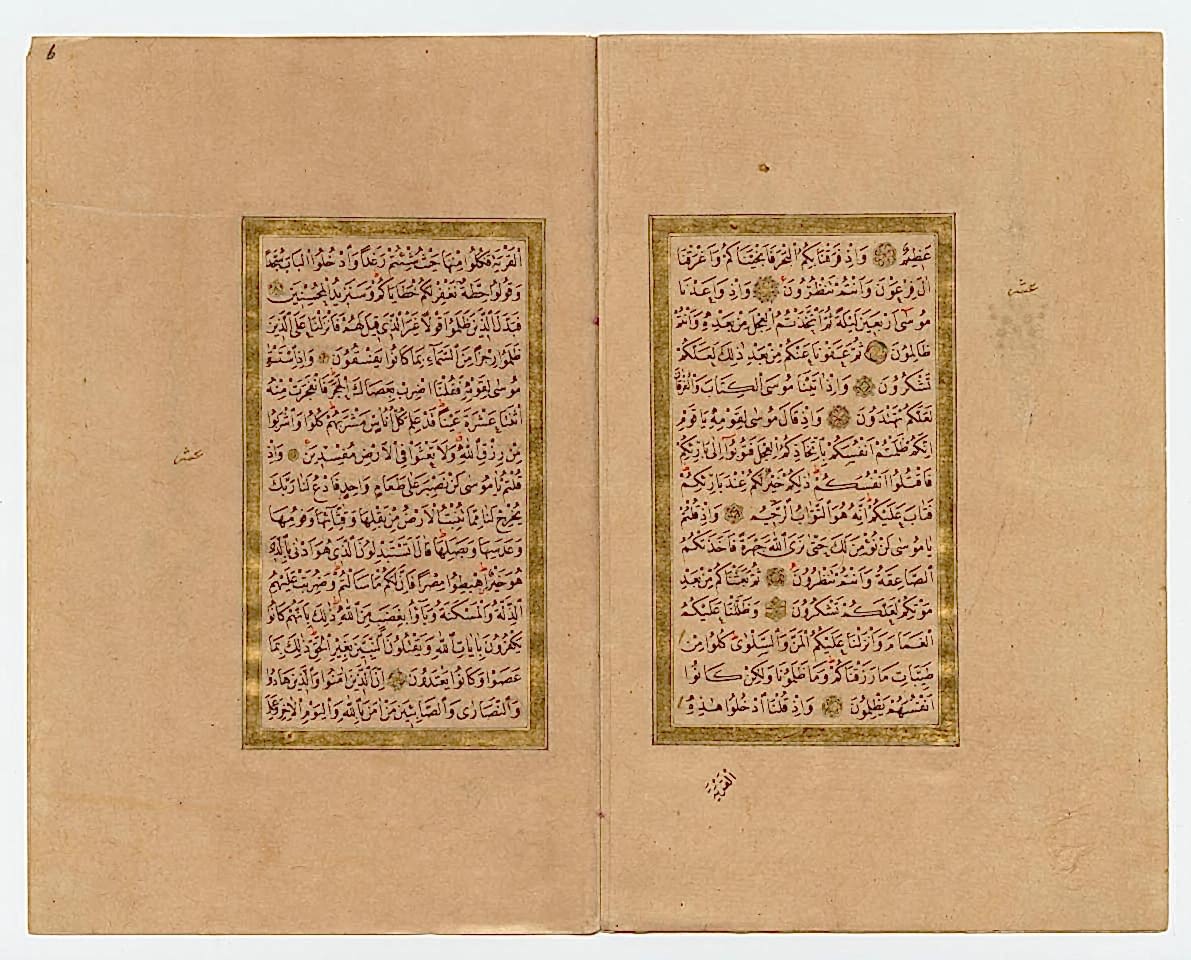 عَظِيمٌ وَاِذْ فَرَقْنَا بِكُمُ الْبَحْرَ فَاَنْجَيْنَاكُمْ وَاَغْرَقْنَا
اٰلَ فِرْعَوْنَ وَاَنْتُمْ تَنْظُرُونَ وَاِذْ وَاعَدْنَا
مُوسٰى اَرْبَعِينَ لَيْلَةً ثُمَّ اتَّخَذْتُمُ الْعِجْلَ مِنْ بَعْدِهِ وَاَنْتُمْ
ظَالِمُونَ ثُمَّ عَفَوْنَا عَنْكُمْ مِنْ بَعْدِ ذٰلِكَ لَعَلَّكُمْ
تَشْكُرُونَ وَاِذْ اٰتَيْنَا مُوسَى الْكِتَابَ وَالْفُرْقَانَ
لَعَلَّكُمْ تَهْتَدُونَ وَاِذْ قَالَ مُوسٰى لِقَوْمِهِ يَا قَوْمِ
اِنَّكُمْ ظَلَمْتُمْ اَنْفُسَكُمْ بِاتِّخَاذِكُمُ الْعِجْلَ فَتُوبُوا اِلٰى بَارِئِكُمْ
فَاقْتُلُوا اَنْفُسَكُمْ ذٰلِكُمْ خَيْرٌ لَكُمْ عِنْدَ بَارِئِكُمْ
فَتَابَ عَلَيْكُمْ اِنَّهُ هُوَ التَّوَّابُ الرَّحِيمُ وَاِذْ قُلْتُمْ
يَا مُوسٰى لَنْ نُؤْمِنَ لَكَ حَتّٰى نَرَى اللّٰهَ جَهْرَةً فَاَخَذَتْكُمُ
الصَّاعِقَةُ وَاَنْتُمْ تَنْظُرُونَ ثُمَّ بَعَثْنَاكُمْ مِنْ بَعْدِ
مَوْتِكُمْ لَعَلَّكُمْ تَشْكُرُونَ وَظَلَّلْنَا عَلَيْكُمُ
الْغَمَامَ وَاَنْزَلْنَا عَلَيْكُمُ الْمَنَّ وَالسَّلْوٰى كُلُوا مِنْ
طَيِّبَاتِ مَا رَزَقْنَاكُمْ وَمَا ظَلَمُونَا وَلٰكِنْ كَانُوا
اَنْفُسَهُمْ يَظْلِمُونَ وَاِذْ قُلْنَا ادْخُلُوا هٰذِهِ
الْقَرْيَةَ
عشر
6
الْقَرْيَةَ فَكُلُوا مِنْهَا حَيْثُ شِئْتُمْ رَغَدًا وَادْخُلُوا الْبَابَ سُجَّدًا
وَقُولُوا حِطَّةٌ نَغْفِرْ لَكُمْ خَطَايَاكُمْ وَسَنَزِيدُ الْمُحْسِنِينَ
فَبَدَّلَ الَّذِينَ ظَلَمُوا قَوْلًا غَيْرَ الَّذِي قِيلَ لَهُمْ فَاَنْزَلْنَا عَلَى الَّذِينَ
ظَلَمُوا رِجْزًا مِنَ السَّمَاءِ بِمَا كَانُوا يَفْسُقُونَ وَاِذِ اسْتَسْقٰى
مُوسٰى لِقَوْمِهِ فَقُلْنَا اضْرِبْ بِعَصَاكَ الْحَجَرَ فَانْفَجَرَتْ مِنْهُ
اثْنَتَا عَشْرَةَ عَيْنًا قَدْ عَلِمَ كُلُّ اُنَاسٍ مَشْرَبَهُمْ كُلُوا وَاشْرَبُوا
مِنْ رِزْقِ اللّٰهِ وَلَا تَعْثَوْا فِي الْاَرْضِ مُفْسِدِينَ وَاِذْ
قُلْتُمْ يَا مُوسٰى لَنْ نَصْبِرَ عَلٰى طَعَامٍ وَاحِدٍ فَادْعُ لَنَا رَبَّكَ
يُخْرِجْ لَنَا مِمَّا تُنْبِتُ الْاَرْضُ مِنْ بَقْلِهَا وَقِثَّائِهَا وَفُومِهَا
وَعَدَسِهَا وَبَصَلِهَا قَالَ اَتَسْتَبْدِلُونَ الَّذِي هُوَ اَدْنٰى بِالَّذِي
هُوَ خَيْرٌ اهْبِطُوا مِصْرًا فَاِنَّ لَكُمْ مَا سَاَلْتُمْ وَضُرِبَتْ عَلَيْهِمُ
الذِّلَّةُ وَالْمَسْكَنَةُ وَبَاؤُا بِغَضَبٍ مِنَ اللّٰهِ ذٰلِكَ بِاَنَّهُمْ كَانُوا
يَكْفُرُونَ بِاٰيَاتِ اللّٰهِ وَيَقْتُلُونَ النَّبِيِّينَ بِغَيْرِ الْحَقِّ ذٰلِكَ بِمَا
عَصَوْا وَكَانُوا يَعْتَدُونَ اِنَّ الَّذِينَ اٰمَنُوا وَالَّذِينَ هَادُوا
وَالنَّصَارٰى وَالصَّابِئِينَ مَنْ اٰمَنَ بِاللّٰهِ وَالْيَوْمِ الْاٰخِرِ وَعَمِلَ
عشر